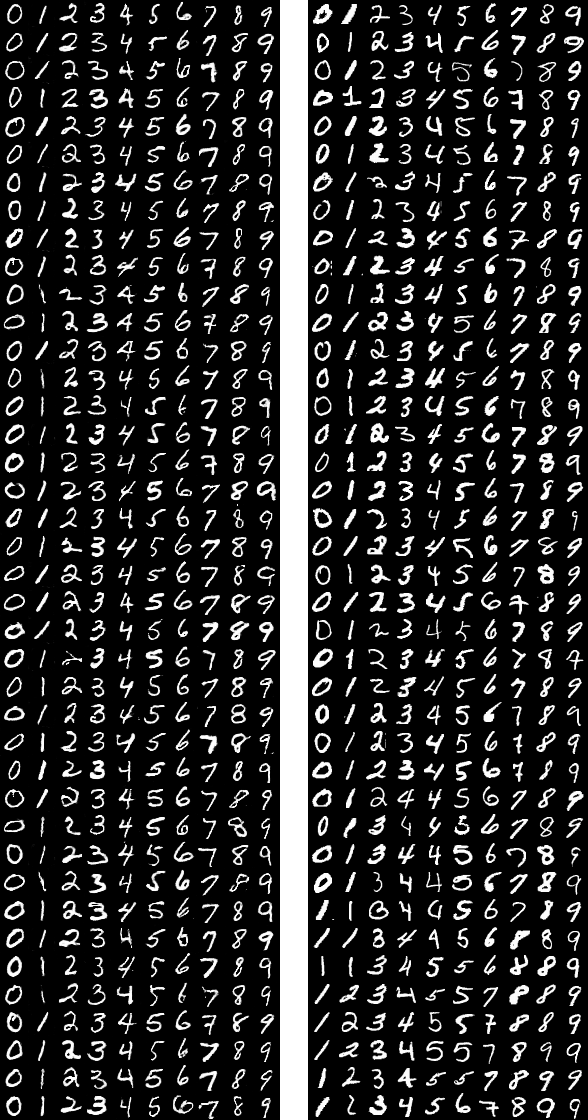 0 1 2 3 4 5 6 7 8 9
0 1 2 3 4 5 6 7 8 9
0 1 2 3 4 5 6 7 8 9
0 1 2 3 4 5 6 7 8 9
0 1 2 3 4 5 6 7 8 9
0 1 2 3 4 5 6 7 8 9
0 1 2 3 4 5 6 7 8 9
0 1 2 3 4 5 6 7 8 9
0 1 2 3 4 5 6 7 8 9
0 1 2 3 4 5 6 7 8 9
0 1 2 3 4 5 6 7 8 9
0 1 2 3 4 5 6 7 8 9
0 1 2 3 4 5 6 7 8 9
0 1 2 3 4 5 6 7 8 9
0 1 2 3 4 5 6 7 8 9
0 1 2 3 4 5 6 7 8 9
0 1 2 3 4 5 6 7 8 9
0 1 2 3 4 5 6 7 8 9
0 1 2 3 4 5 6 7 8 9
0 1 2 3 4 5 6 7 8 9
0 1 2 3 4 5 6 7 8 9
0 1 2 3 4 5 6 7 8 9
0 1 2 3 4 5 6 7 8 9
0 1 2 3 4 5 6 7 8 9
0 1 2 3 4 5 6 7 8 9
0 1 2 3 4 5 6 7 8 9
0 1 2 3 4 5 6 7 8 9
0 1 2 3 4 5 6 7 8 9
0 1 2 3 4 5 6 7 8 9
0 1 2 3 4 5 6 7 8 9
0 1 2 3 4 5 6 7 8 9
0 1 2 3 4 5 6 7 8 9
0 1 2 3 4 5 6 7 8 9
0 1 2 3 4 5 6 7 8 9
0 1 2 3 4 5 6 7 8 9
0 1 2 3 4 5 6 7 8 9
0 1 2 3 4 5 6 7 8 9
0 1 2 3 4 5 6 7 8 9
0 1 2 3 4 5 6 7 8 9
0 1 2 3 4 5 6 7 8 9
0 1 2 3 4 5 6 7 8 9
0 1 2 3 4 5 6 7 8 9
0 1 2 3 4 5 6 7 8 9
0 1 2 3 4 5 6 7 8 9
0 1 2 3 4 5 6 7 8 9
0 1 2 3 4 5 6 7 8 9
0 1 2 3 4 5 6 7 8 9
0 1 2 3 4 5 6 7 8 9
0 1 2 3 4 5 6 7 8 9
0 1 2 3 4 5 6 7 8 9
0 1 2 3 4 5 6 7 8 9
0 1 2 3 4 5 6 7 8 9
0 1 2 3 4 5 6 7 8 9
0 1 2 3 4 5 6 7 8 9
0 1 2 3 4 5 6 7 8 9
0 1 2 3 4 5 6 7 8 9
0 1 2 3 4 5 6 7 8 9
0 1 2 3 4 5 6 7 8 9
0 1 2 3 4 5 6 7 8 9
0 1 2 3 4 5 6 7 8 9
0 1 2 3 4 5 6 7 8 9
0 1 2 3 4 5 6 7 8 9
0 1 2 3 4 5 6 7 8 9
0 1 2 3 4 5 6 7 8
0 1 2 3 4 5 6 7 8 9
0 1 2 3 4 5 6 7 8 9
0 1 2 3 4 5 6 7 8 9
0 1 2 3 4 5 6 7 8 9
0 1 2 4 4 5 6 7 8 9
0 1 3 4 4 3 6 7 8 9
0 1 3 4 4 5 6 7 8 9
0 1 3 4 4 5 6 7 8 9
1 1 3 4 4 5 6 7 8 9
1 1 3 4 4 5 6 8 8 9
1 1 3 4 5 5 6 8 8 9
1 2 3 4 5 5 7 8 8 9
1 2 3 4 5 5 7 8 8 9
1 2 3 4 5 5 7 8 9 9
1 2 3 4 5 5 7 8 9 9
1 2 3 4 5 6 7 8 9 9